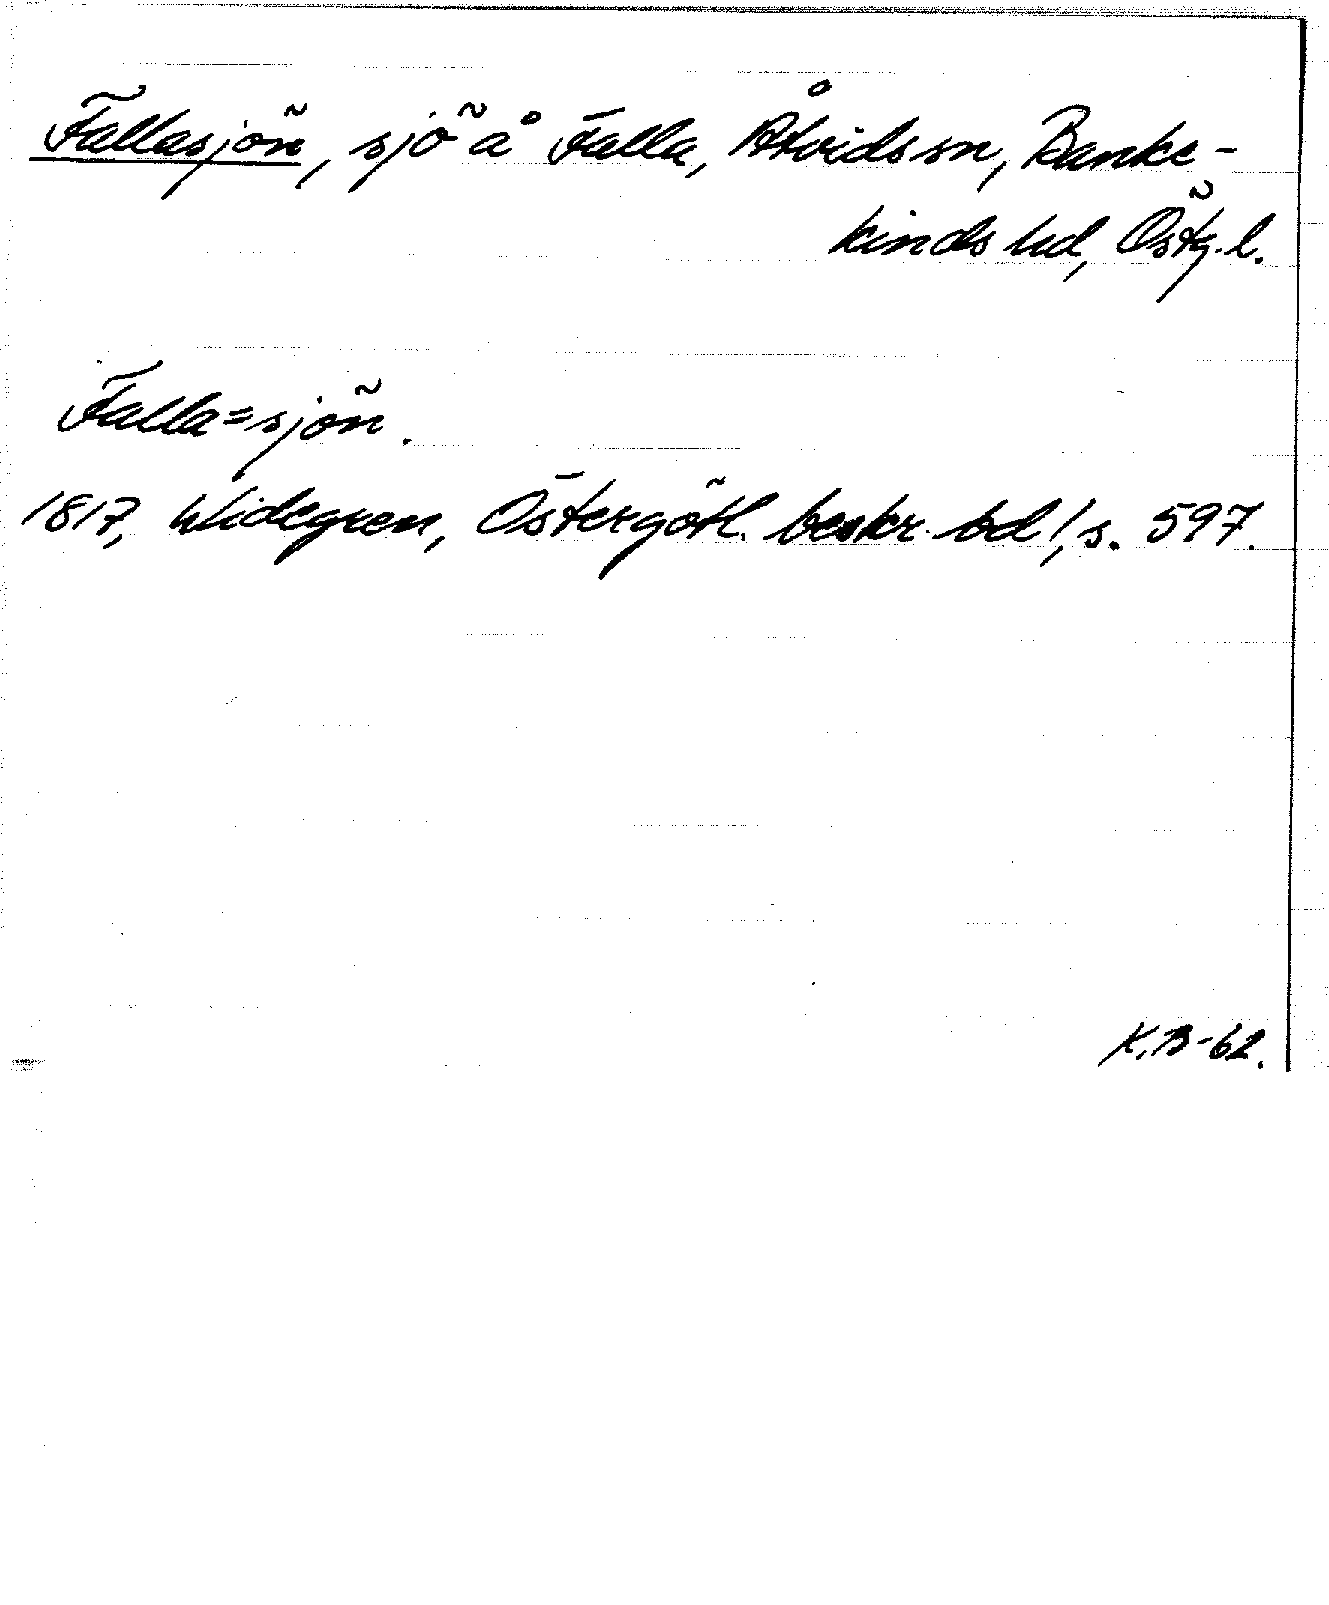 Fallasjön, sjö å Falla, Åtvids sn, Banke-
kinds hd, Östg. l.
Falla=sjön.
1817, Widegren, Östergötl. beskr. bd 1, s. 597.
K.B-62.